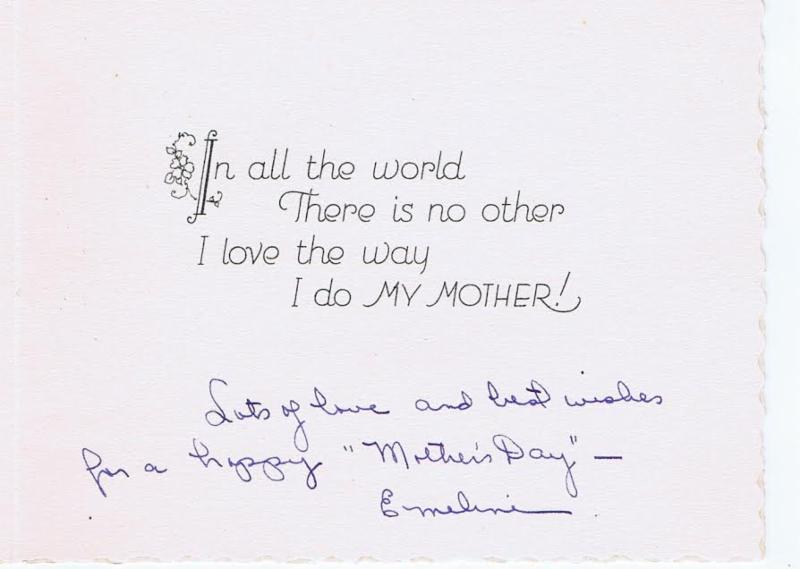 In all the world
There is no other
I love the way
I do MY MOTHER!
Lots of love and best wishes
for a happy "Mother's Day" —
Emeline